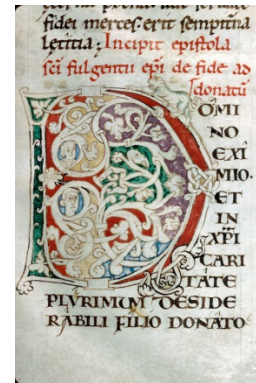 fidei merces. erit sempit̄na
lętitia; Incipit epistola
sc̄i fulgentii ep̄i de fide ad
donatū
OMI
NO
EXI
MIO.
ET
IN
XP̄I
CARI
TATE
PLVRIMVM DESIDE
RABILI FILIO DONATO